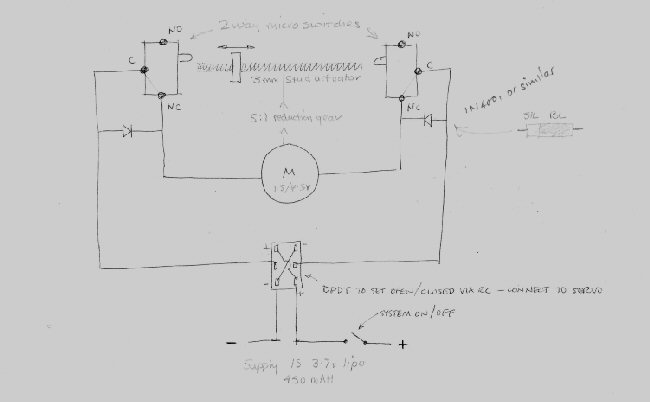 2 way micro switches
NO
NO
C
C
5mm stud actuator
NC
NC
1N4001 or similar
5:1 reduction gear
M
1.5/4.5v
DPDT TO SET OPEN/CLOSED VIA RC - CONNECT TO SERVO
SYSTEM ON/OFF
- +
Supply 1S 3.7v lipo
mAH